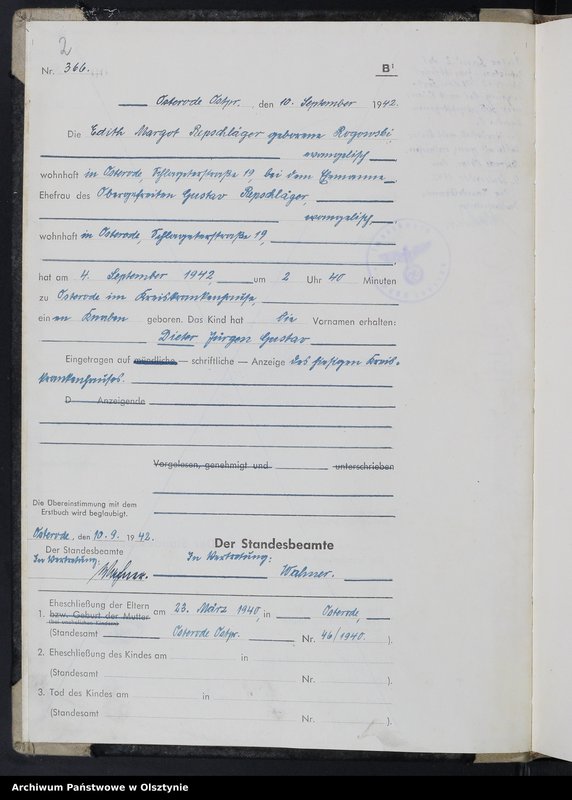 2
Nr. 366.
B¹
Osterode Ostpr., den 10. September 1942.
Die Edith Margot Repschläger geborene Rogowski,
evangelisch
wohnhaft in Osterode Schlageterstraße 19, bei dem Ehemanne
Ehefrau des Obergefreiten Gustav Repschläger,
evangelisch,
wohnhaft in Osterode, Schlageterstraße 19,
hat am 4. September 1942, um 2 Uhr 40 Minuten
zu Osterode im Kreiskrankenhause,
einen Knaben geboren. Das Kind hat die Vornamen erhalten:
Dieter Jürgen Gustav
Eingetragen auf mündliche — schriftliche — Anzeige des hiesigen Kreis-
krankenhauses.
D Anzeigende
Vorgelesen, genehmigt und unterschrieben
Die Übereinstimmung mit dem
Erstbuch wird beglaubigt.
Osterode, den 10.9. 1942.
Der Standesbeamte
Der Standesbeamte
In Vertretung:
In Vertretung:
Wahner.
Eheschließung der Eltern
1. bzw. Geburt der Mutter am 23. März 1940, in Osterode,
(bei unehelichen Kindern)
(Standesamt Osterode Ostpr. Nr. 46/1940. ).
2. Eheschließung des Kindes am in
(Standesamt Nr. ).
3. Tod des Kindes am in
(Standesamt Nr. ).
Archiwum Państwowe w Olsztynie